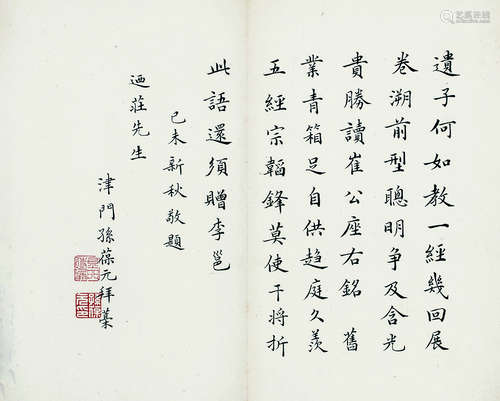 遺子何如教一經幾回展
卷溯前型聰明爭及含光
貴勝讀崔公座右銘舊
業青箱足自供趨庭久羨
五經宗韜鋒莫使干將折
此語還須贈李邕
己未新秋敬題
迺莊先生
津門孫葆元拜藳